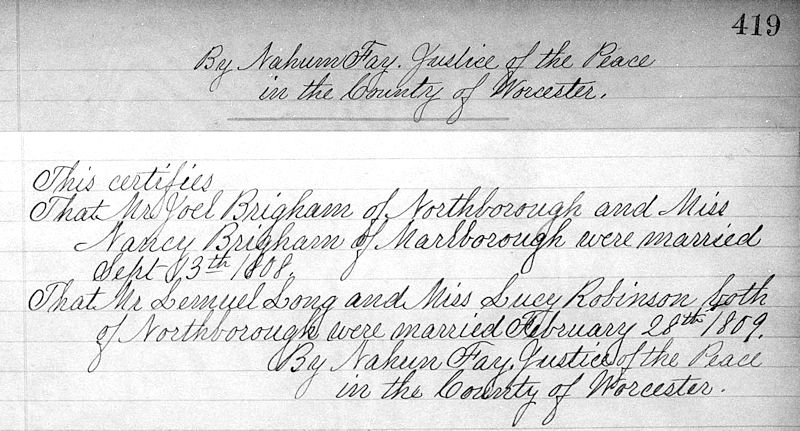 419
By Nahum Fay. Justice of the Peace
in the County of Worcester.
This certifies
That Mr Joel Brigham of Northborough and Miss
Nancy Brigham of Marlborough were married
Sept 13th 1808.
That Mr Lemuel Long and Miss Lucy Robinson both
of Northborough were married February 28th 1809.
By Nahum Fay. Justice of the Peace
in the County of Worcester.